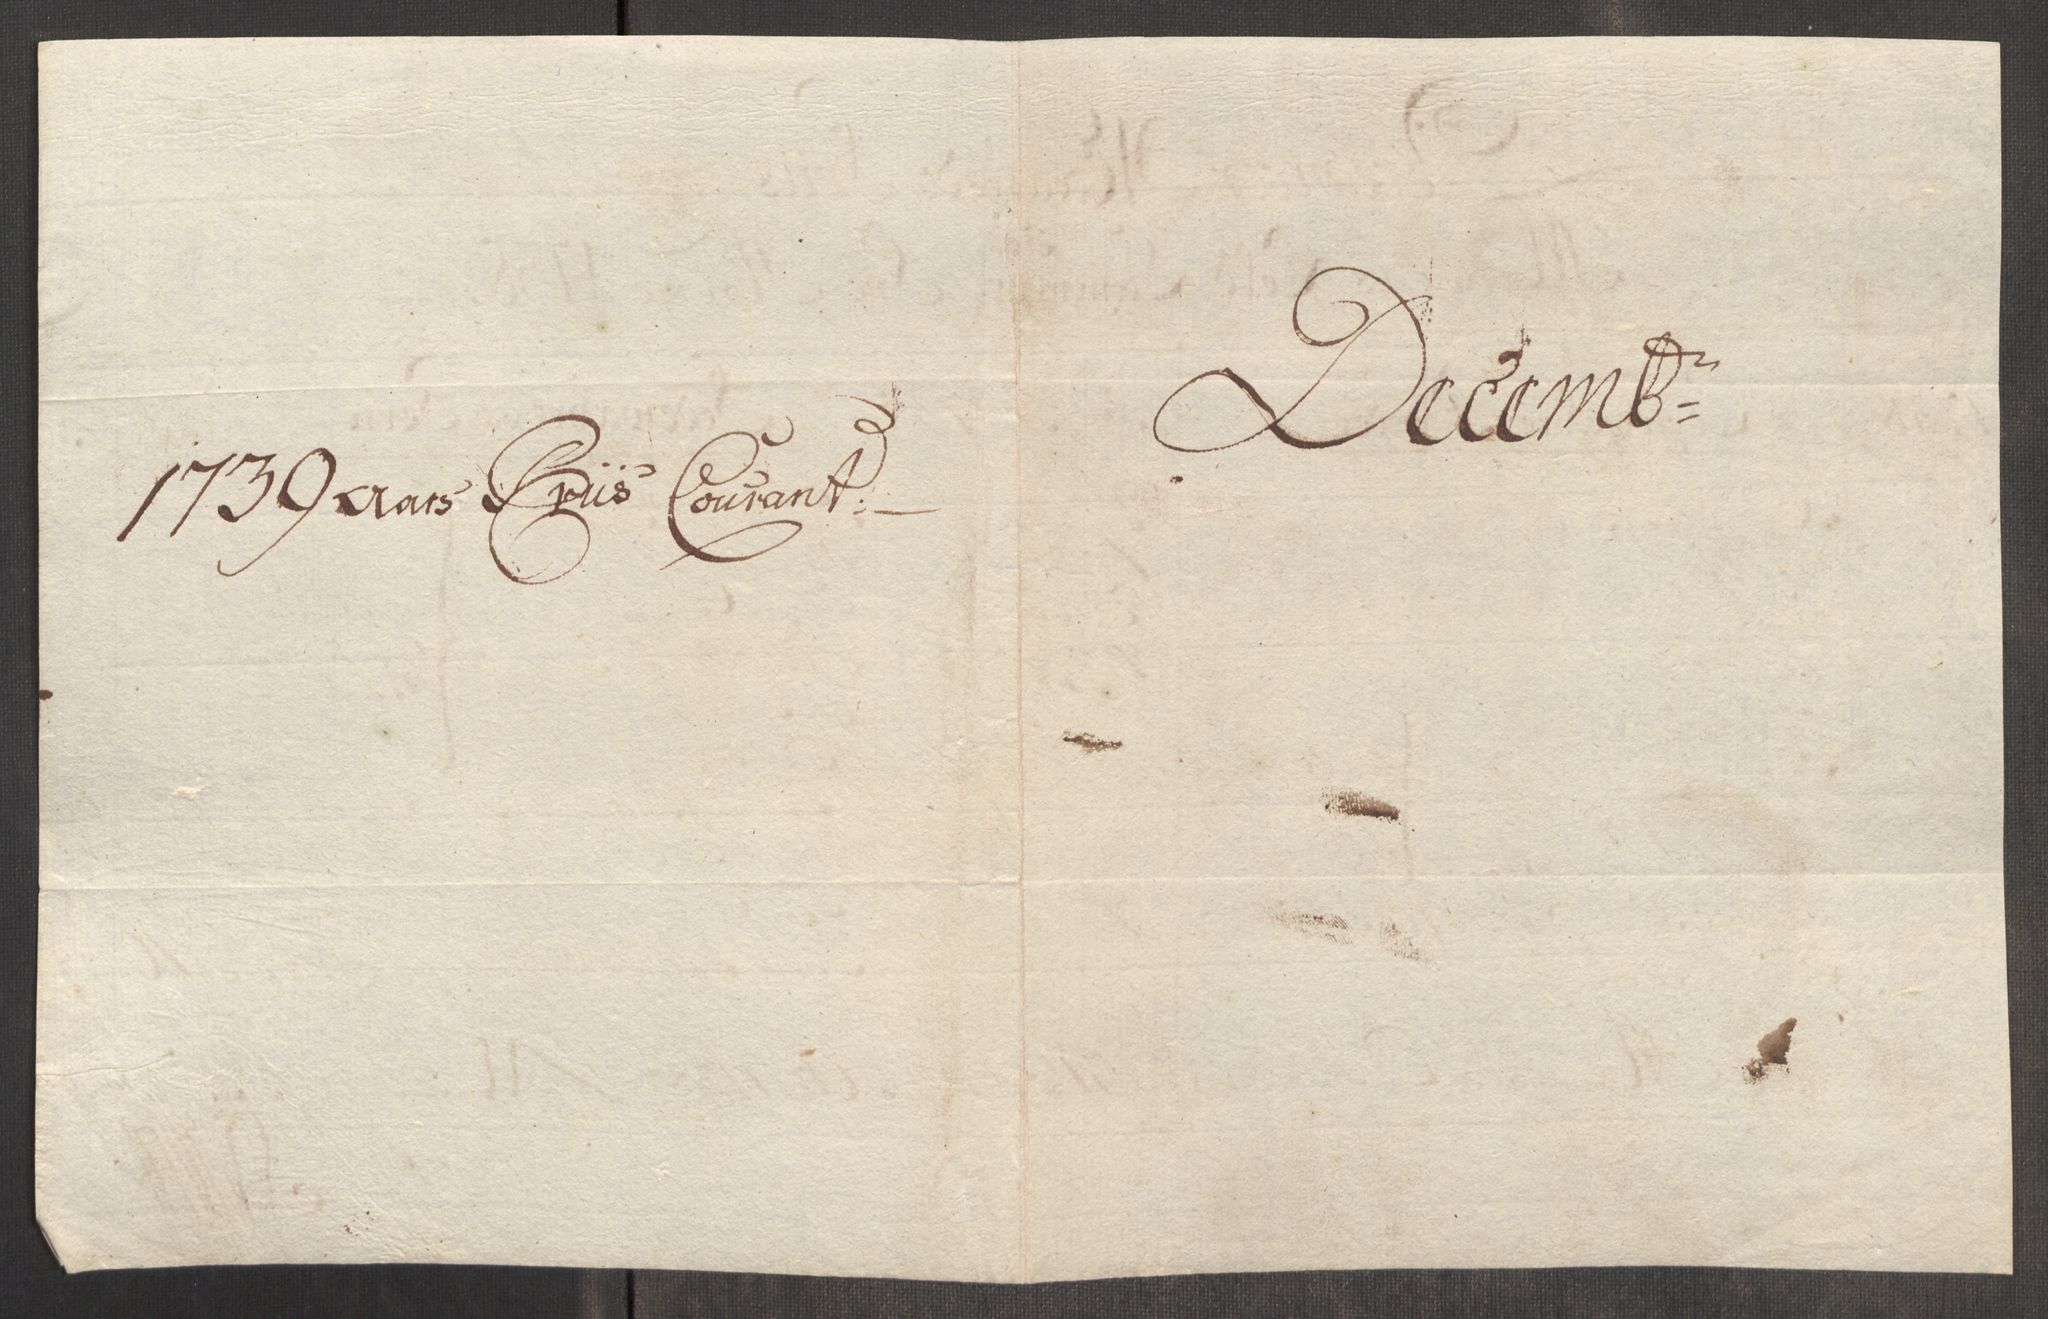 1739 aars Priis Courant:
Decembr